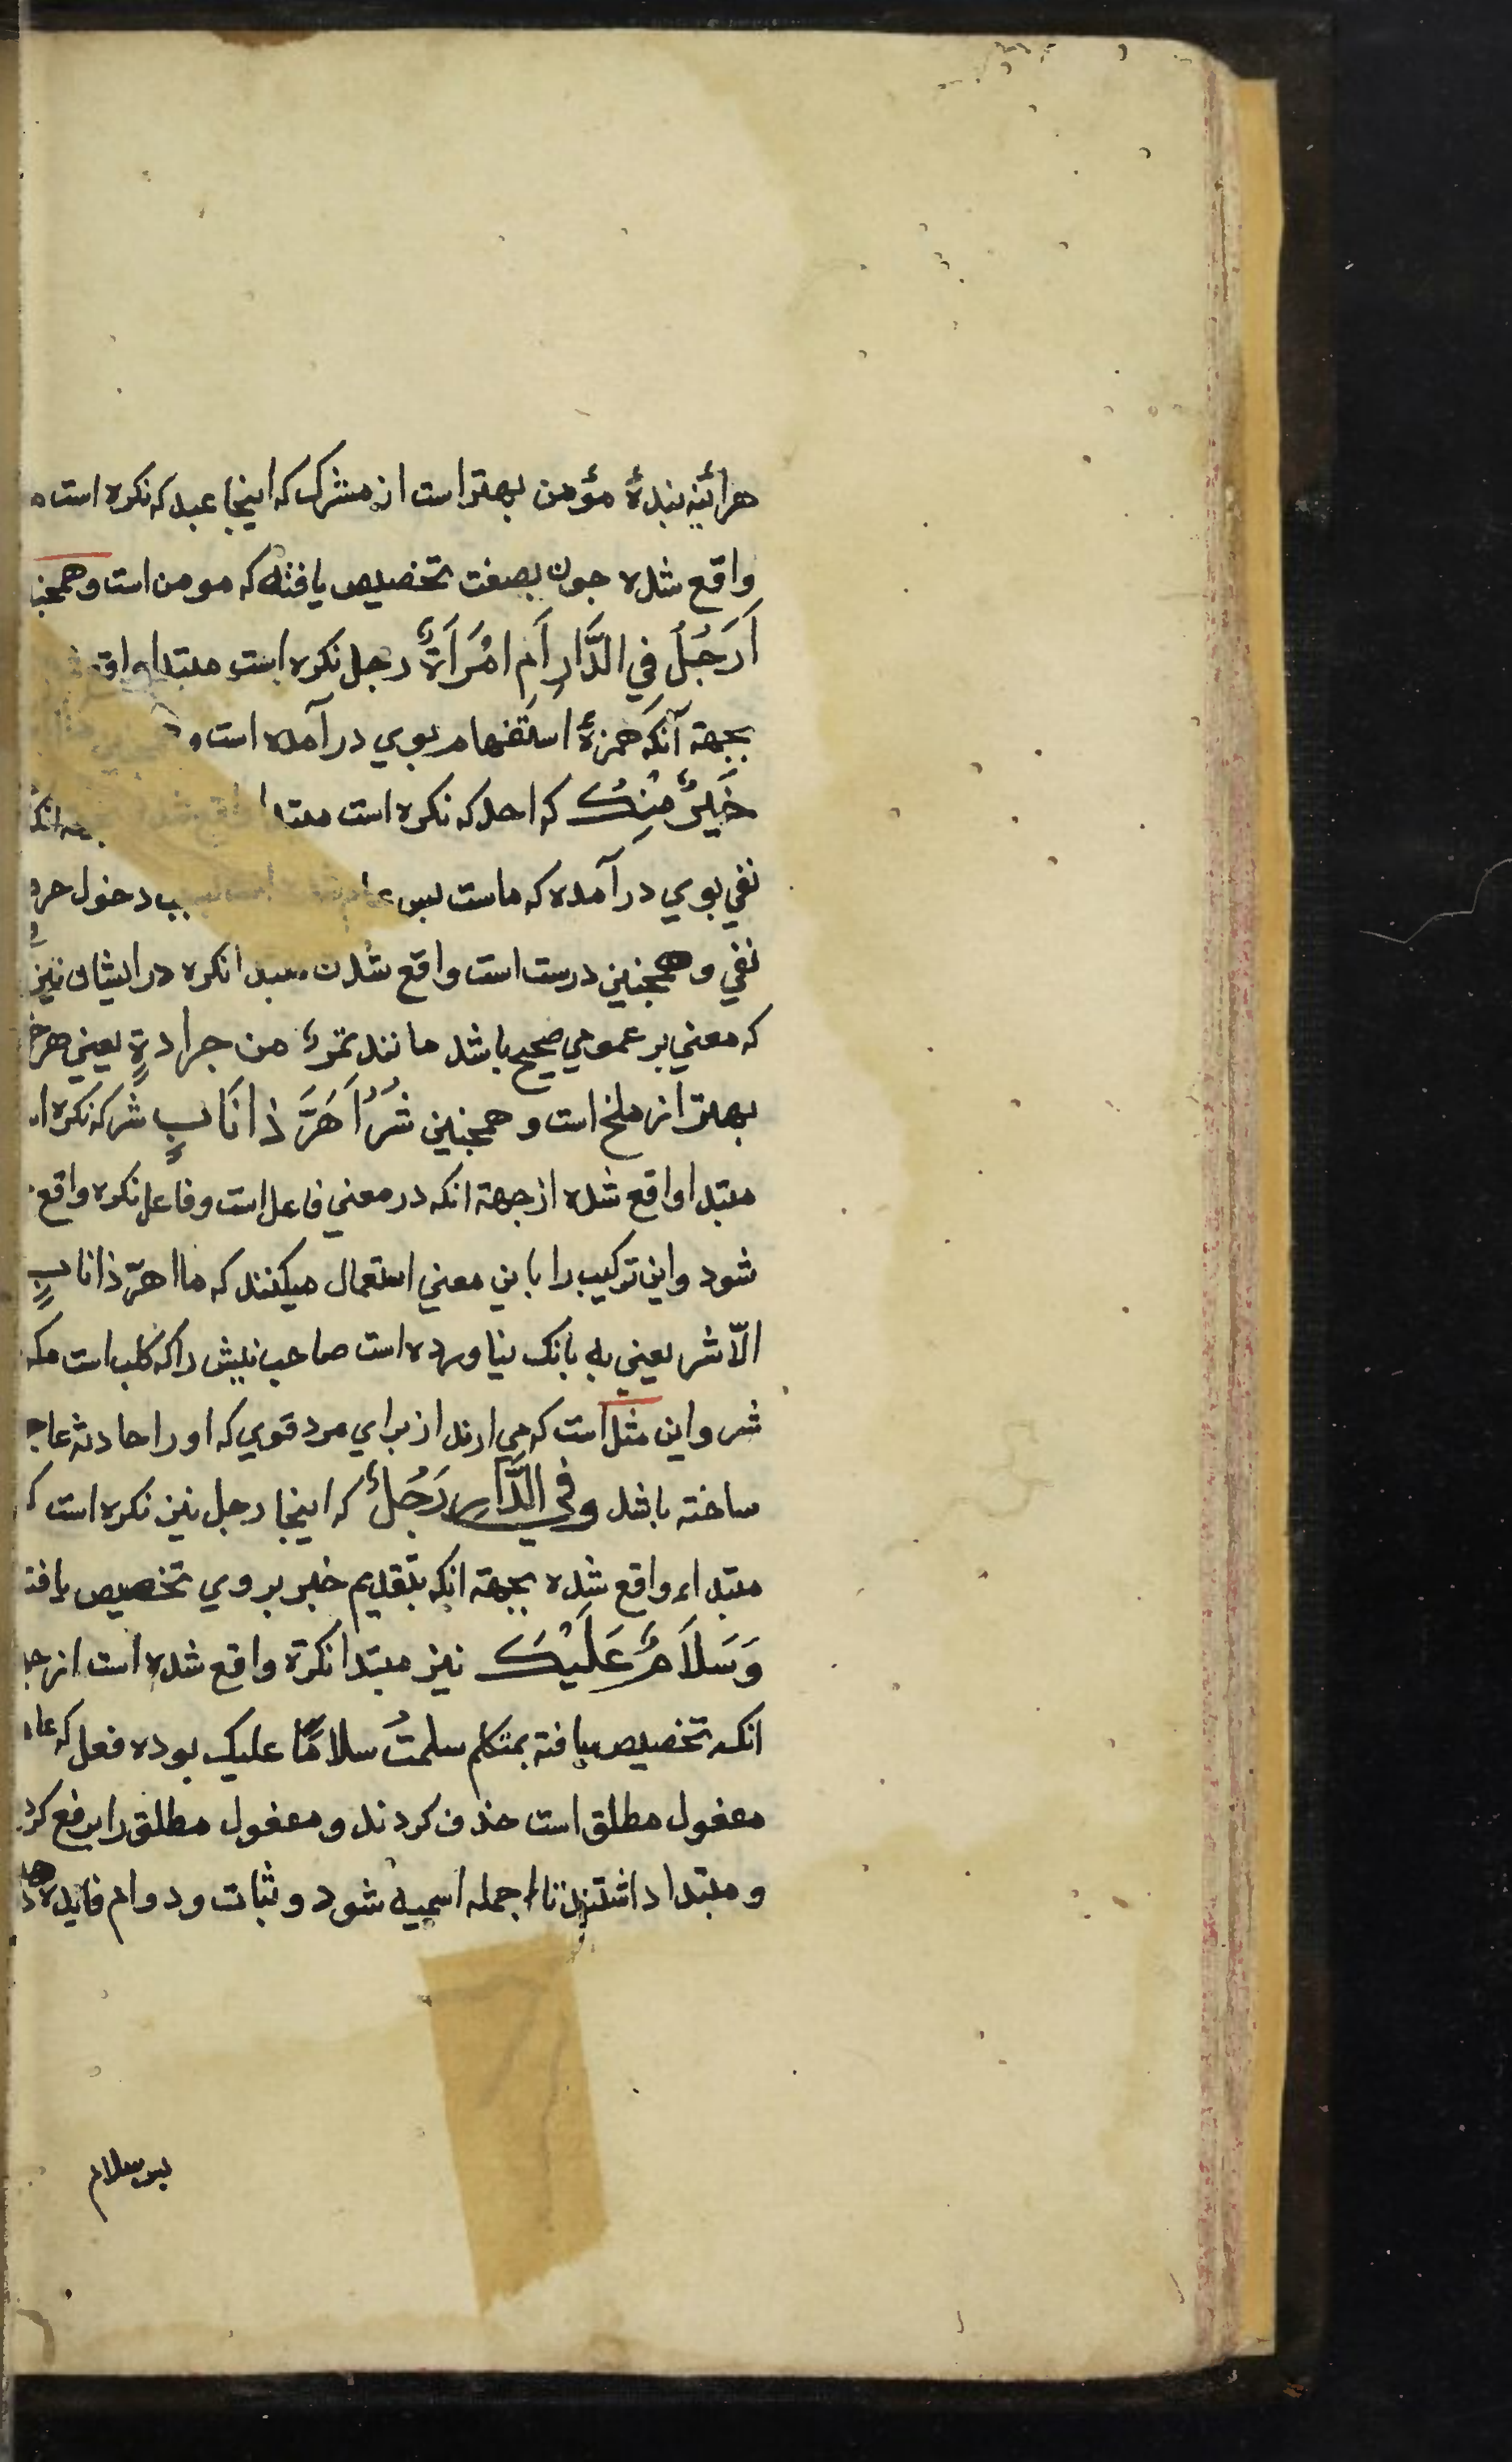 هرائینه بندهٔ مؤمن بهتر است از مشرک که اینجا عبد که نکره است
واقع شده جون بصفت تخصیص یافته که مومن است و همجنـ
اَرَجُلٌ فِي الدَّارِ اَمِ امْرَاَةٌ رجل نکره است مبتدا واقع
بجهة آنکه همزهٔ استفهام بوي در آمده است و
خَيرٌ مِنْكَ که احد که نکره است مبتدا واقع شده انکه
نفي بوي در آمده که ماست بس عام شده است بسبب دخول حرف
نفي و همجنین درست است واقع شدن مبتدا نکره در ایشان نیز
که معني بر عمومي صحیح باشد مانند تمرة من جرادةٍ یعني هر خر
بهتر از ملخ است و همجنین شَرٌّ اَهَرَّ ذَا نَابٍ شر که نکره ا
مبتدا واقع شده از جهة انکه در معني فاعل است و فاعل نکره واقع
شود و این ترکیب را باین معني استعمال میکنند که ما اهرّ ذا نابٍ
الّا شر یعني به بانک نیاورده است صاحب نیش را که کلب است مکر
شر و این مثل است که مي ارند از براي مرد قوي که او را حادثه عاجـ
ساخته باشد وفِي الدَّارِ رَجُلٌ که اینجا رجل نیز نکره است کـ
مبتداء واقع شده بجهة انکه بتقدیم خبر بروي تخصیص یافتـ
وَسَلَامٌ عَلَيْكَ نیز مبتدا نکرة واقع شده است از جـ
انکه تخصیص یافته بمتکلم سلمتُ سلامًا علیک بوده فعل که عا
مفعول مطلق است حذف کردند و مفعول مطلق را برفع کرد
و مبتدا داشتند تا جمله اسمیه شود و ثبات و دوام فایده دهد
بس سلام